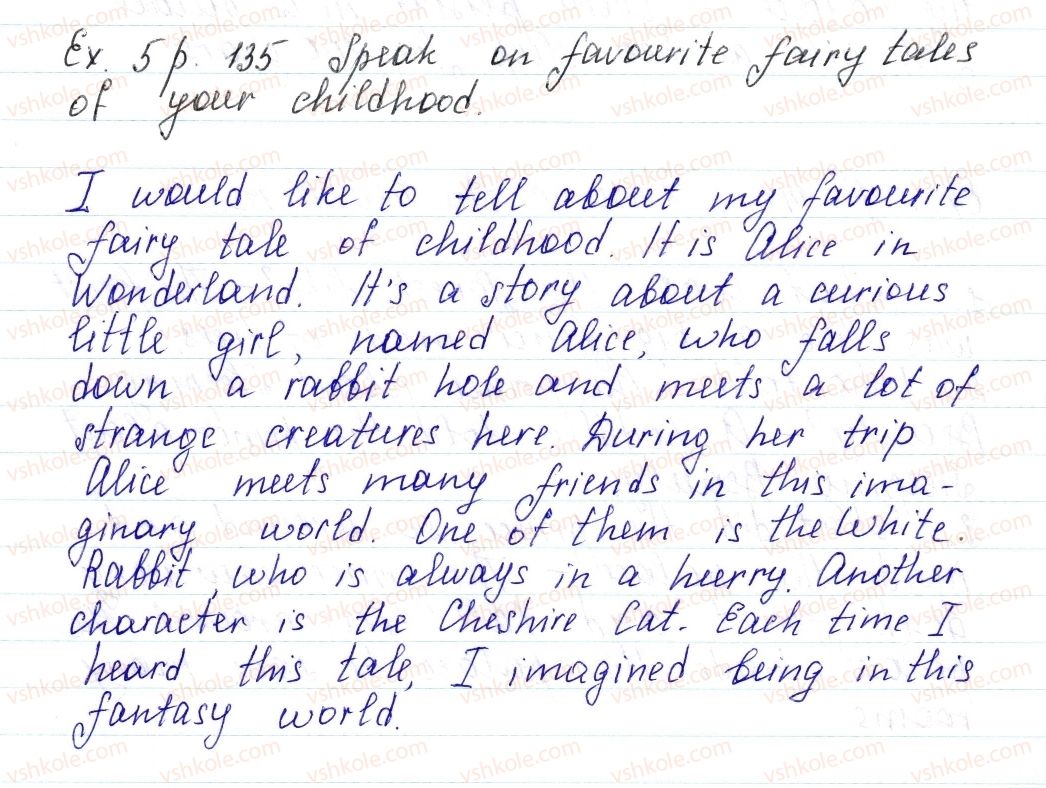 Ex. 5 p. 135 Speak on favourite fairy tales
of your childhood.
I would like to tell about my favourite
fairy tale of childhood. It is Alice in
Wonderland. It's a story about a curious
little girl, named Alice, who falls
down a rabbit hole and meets a lot of
strange creatures here. During her trip
Alice meets many friends in this ima-
ginary world. One of them is the White
Rabbit, who is always in a hurry. Another
character is the Cheshire Cat. Each time I
heard this tale, I imagined being in this
fantasy world.